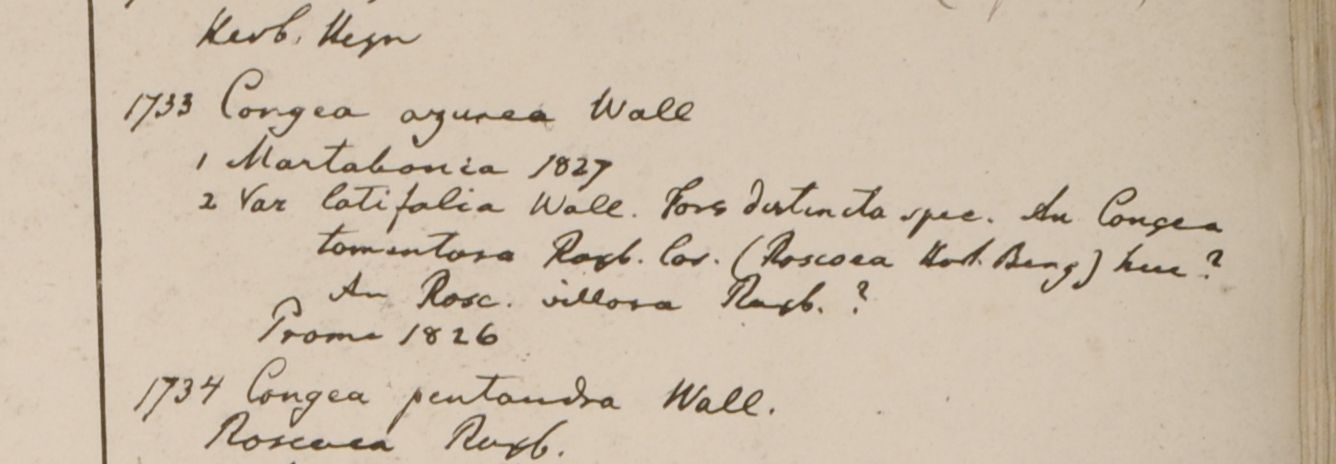 Herb. Heyn
1733 Congea azurea Wall
1 Martabania 1827
2 Var latifolia Wall. Fors distincta spec. An Congea
tomentosa Roxb. Cor. (Roscoea Hort. Beng) huc?
An Rosc. villosa Roxb. ?
Prome 1826
1734 Congea pentandra Wall.
Roscoea Roxb.